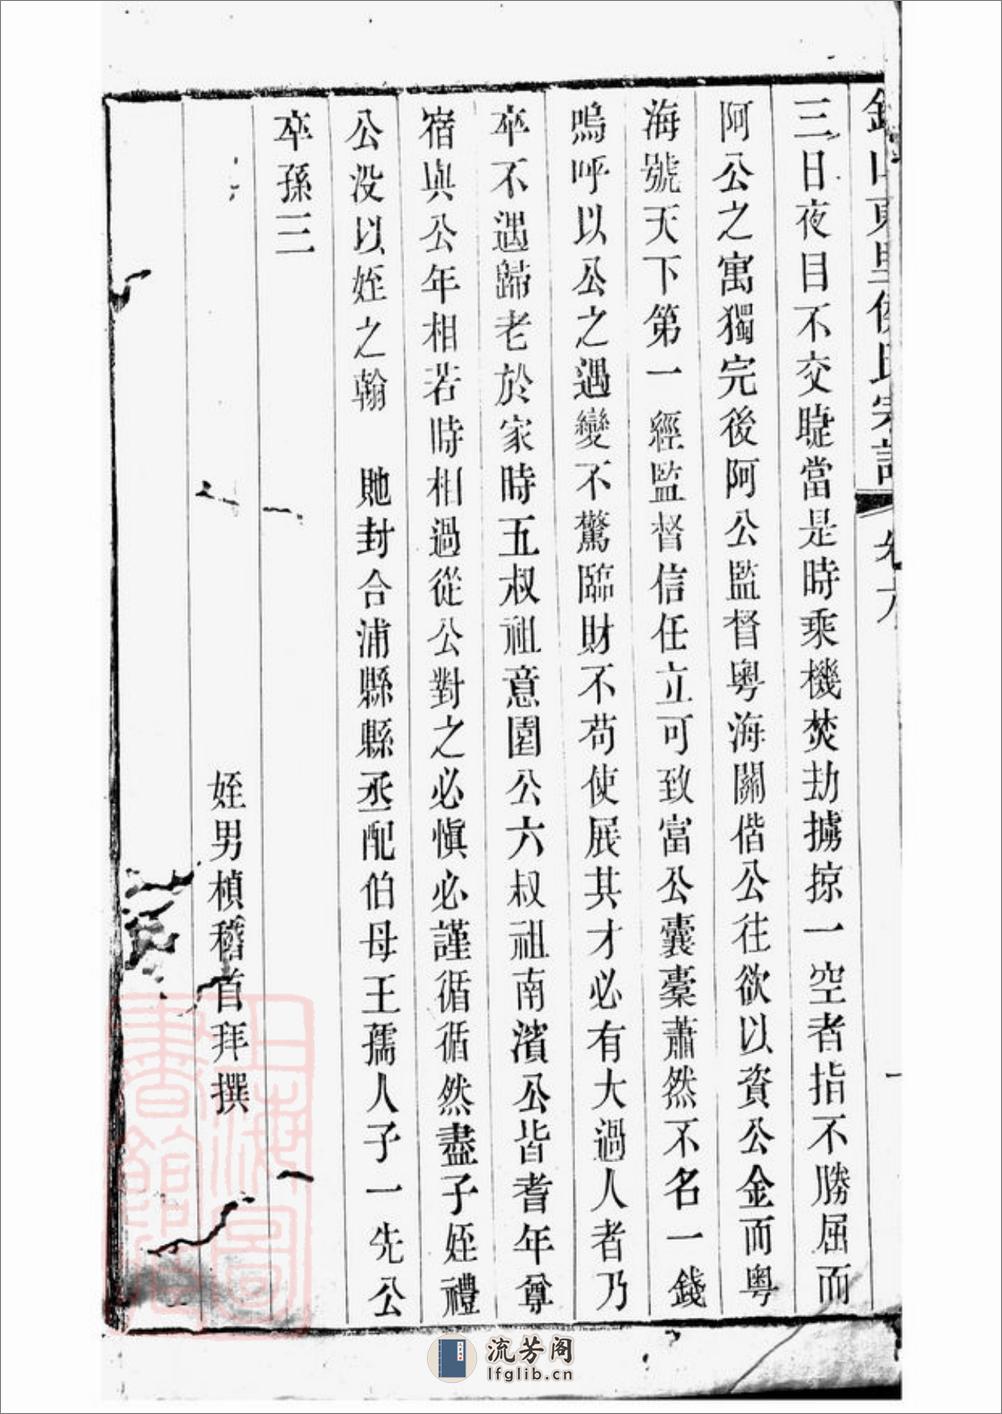 山東里侯氏宗譜 卷六
三日夜目不交睫當是時乘機焚劫擄掠一空者指不勝屈而
阿公之寓獨完後阿公監督粵海關偕公往欲以資公金而粵
海號天下第一經監督信任立可致富公囊橐蕭然不名一錢
嗚呼以公之遇變不驚臨財不苟使展其才必有大過人者乃
卒不遇歸老於家時五叔祖意園公六叔祖南濱公皆耆年尊
宿與公年相若時相過從公對之必慎必謹循循然盡子姪禮
公没以姪之翰 貤封合浦縣縣丞配伯母王孺人子一先公
卒孫三
姪男楨稽首拜撰
上海圖書館藏
流芳阁
lfglib.cn